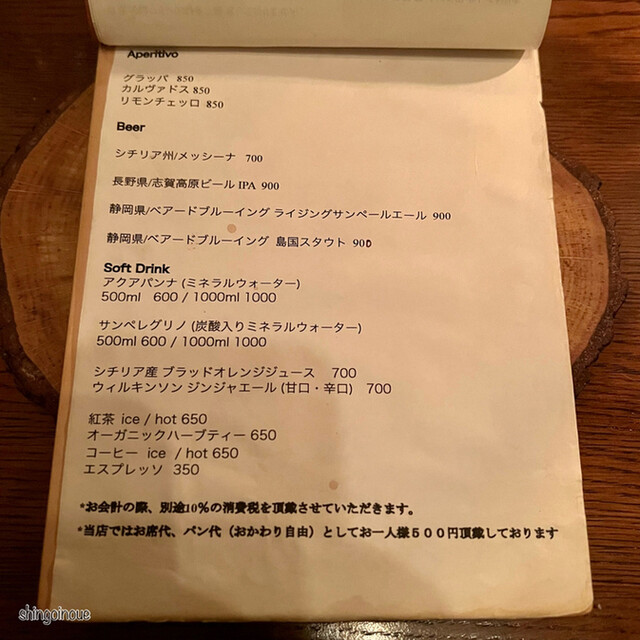 Aperitivo
グラッパ 850
カルヴァドス 850
リモンチェッロ 850
Beer
シチリア州/メッシーナ 700
長野県/志賀高原ビール IPA 900
静岡県/ベアードブルーイング ライジングサンペールエール 900
静岡県/ベアードブルーイング 島国スタウト 900
Soft Drink
アクアパンナ (ミネラルウォーター)
500ml 600 / 1000ml 1000
サンペレグリノ (炭酸入りミネラルウォーター)
500ml 600 / 1000ml 1000
シチリア産 ブラッドオレンジジュース 700
ウィルキンソン ジンジャエール (甘口・辛口) 700
紅茶 ice / hot 650
オーガニックハーブティー 650
コーヒー ice / hot 650
エスプレッソ 350
*お会計の際、別途10%の消費税を頂戴させていただきます。
*当店ではお席代、パン代（おかわり自由）としてお一人様５００円頂戴しております
shingoinoue